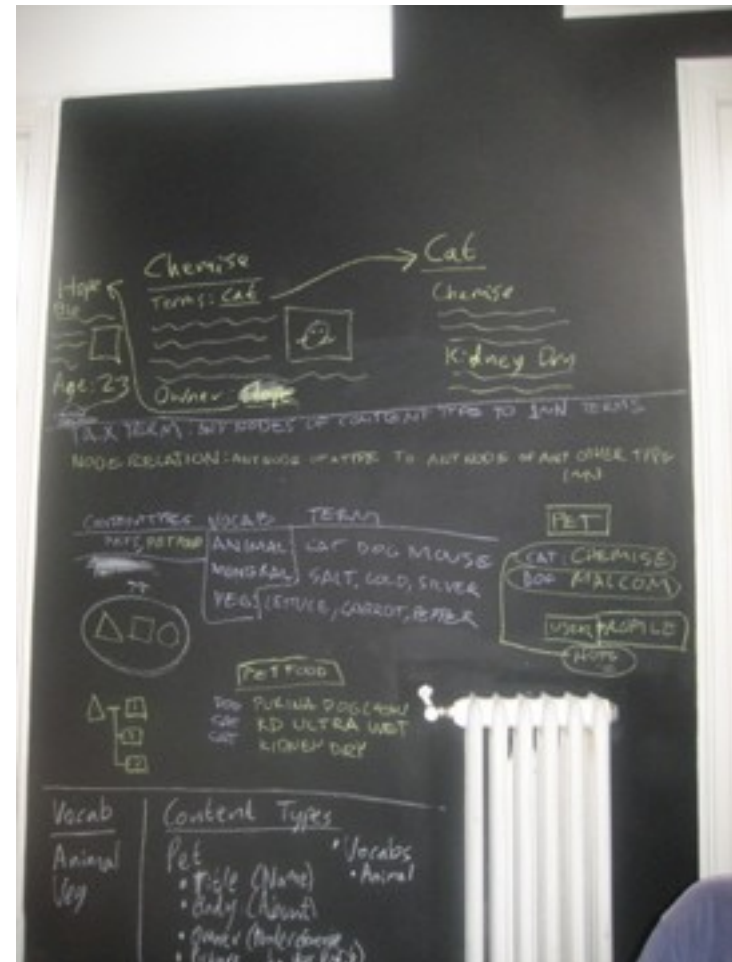 Chemise
Cat
Hope
Terms: Cat
Chemise
Kidney Dry
Age: 23
Owner: Hope
TAX TERM: ANY NODES OF CONTENT TYPE TO TERMS
NODE RELATION: ANY NODE OF A TYPE TO ANY NODE OF ANY OTHER TYPE
CONTENT TYPES VOCAB TERM
PETS, PET FOOD ANIMAL CAT DOG MOUSE
MINERAL SALT, GOLD, SILVER
VEGS LETTUCE, CARROT, PEPPER
PET
CAT: CHEMISE
DOG MALCOM
USER PROFILE
NOTE
PET FOOD
DOG PURINA DOG CHOW
CAT KD ULTRA WET
CAT KIDNEY DRY
1
3
2
Vocab
Animal
Veg
Content Types
Pet
• Title (Name)
• Body (About)
• Owner
• Vocabs
• Animal